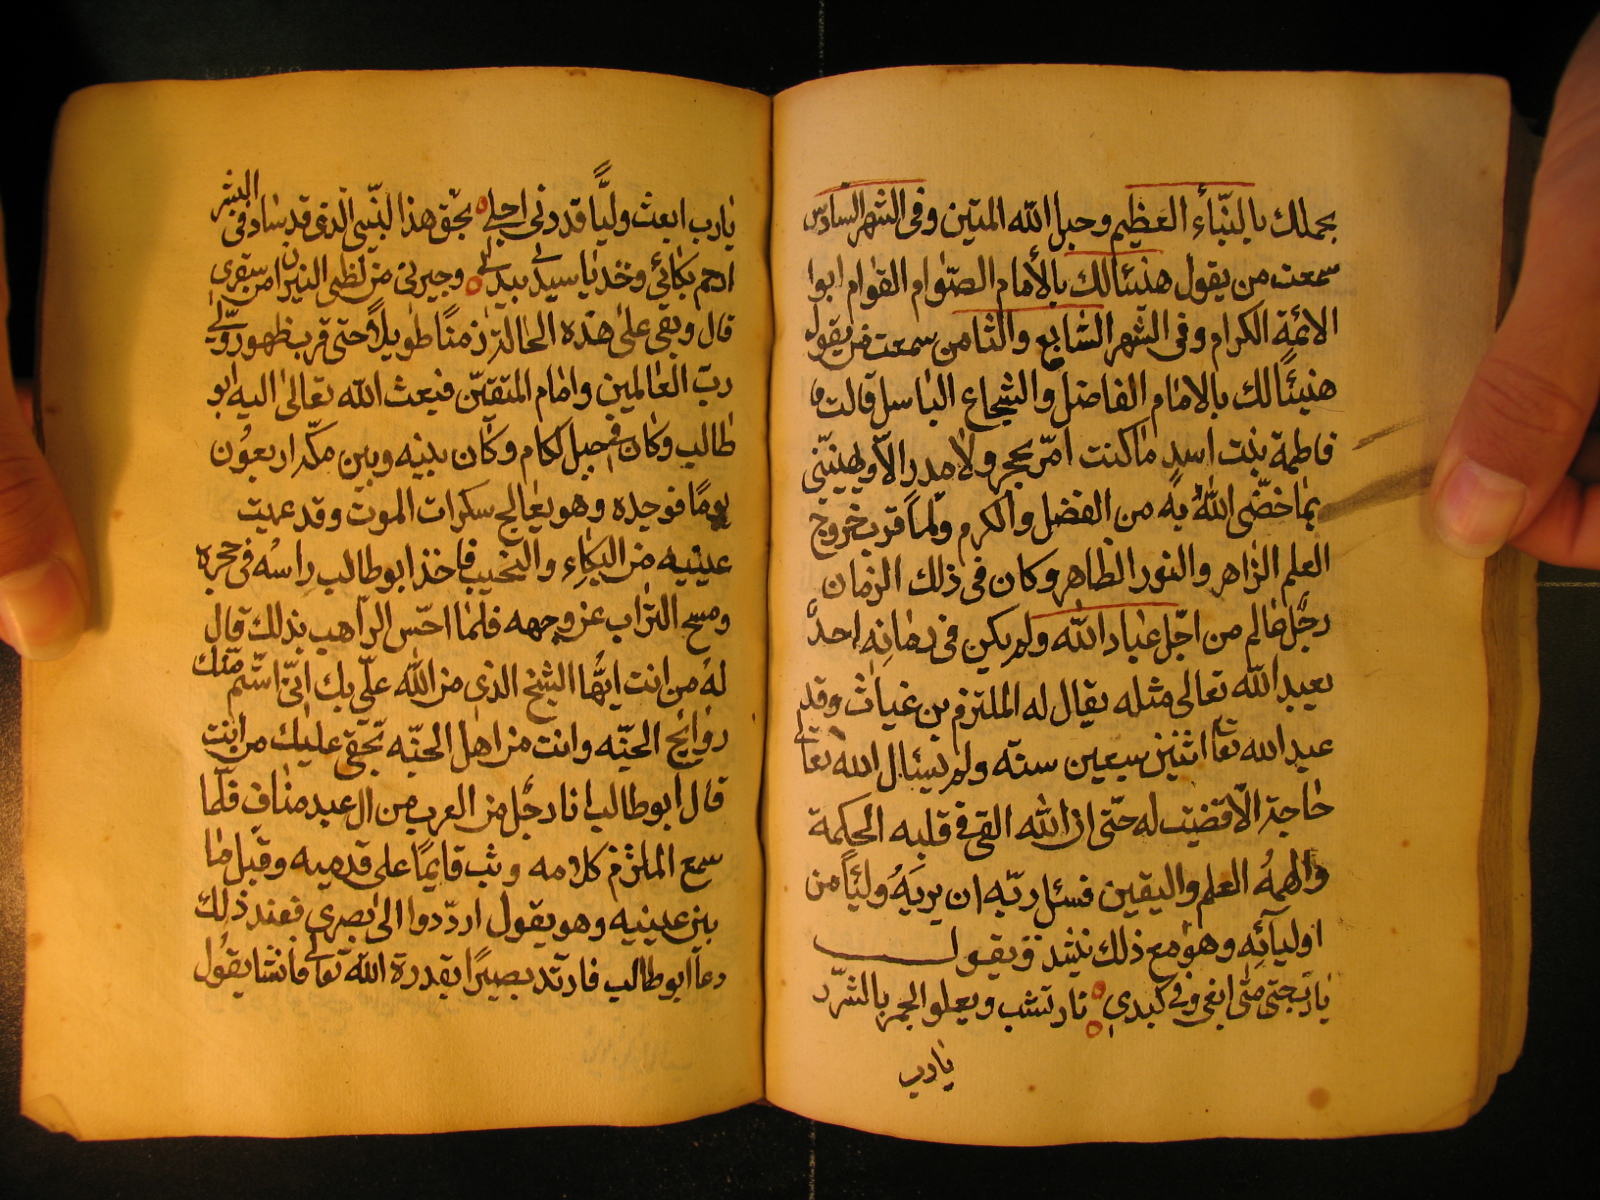 بحملك بالنبّاء العظيم وحبل الله المتين وفى الشهر السادس
سمعت من يقول هنيئا لك بالأمام الصّوام القوام ابوا
الائمة الكرام وفى الشهر السّابع والثامن سمعت من يقول
هنيئًا لك بالامام الفاضل والشجاع الباسل قالت
فاطمة بنت اسد ما كنت امرّ بحجرٍ ولا مدر الّا ويهنيّنى
بما خصّنى الله به من الفضل والكرم ولما قرب خروج
العلم الزاهر والنور الطاهر وكان فى ذلك الزمان
رجلٌ عالم من اجّل عباد الله ولم يكن فى زمانِه احدٌ
يعبد الله تعالى مثله يقال له الملتزم بن غياث وقد
عبد الله تعا اثنين سبعين سنة ولم يسئال الله تعالى
حاجة الّا قضيت له حتّى ان الله القى فى قلبه الحكمة
والهمهُ العلم واليقين فسئل ربّه ان يريَهُ وليّاً من
اوليآئِه وهو مع ذلك ينشد ويقول
يا ربّ حتى متى ابغى وفى كبدى نار تشب ويعلو الجمر بالشرّر
يارب
يارب ابعث وليًّا قد دنى اجلى بحق هذا النبّى الذى قد ساد فى البشر
ارحم بكائى وخذ يا سيدى بيدى وجيرنى من لظى النيران من سقرى
قال وبقى على هذه الحالة زمنًا طويلاً حتى قرب ظهور ولّى
ربّ العالمين وامام المتقيّن فبعث الله تعالى اليه ابو
طالب وكان فى جبل لكام وكان بينه وبين مكّه اربعون
يومًا فوجده وهو يعالج سكرات الموت وقد عميت
عينيه من البكاءِ والنحيب فاخذ ابو طالب راسُه فى حجره
ومسح التراب عن وجهه فلما احّس الرّاهب بذلك قال
لهُ من انت ايهُّا الشيخ الذى من الله علّى بك انىّ اشتّم منّك
روايح الجنّه وانت من اهل الجنّه بحقى عليك من انت
قال ابو طالب انا رجُل من العرب من ال عبد مناف فلّما
سمع الملتزم كلامه وثب قايمًا على قدميه وقبل ما
بين عينيه وهو يقول اردّدوا الى بصرى فعند ذلك
دعا ابو طالب فارتد بصيرًا بقدرة الله تعالى فانشا يقول